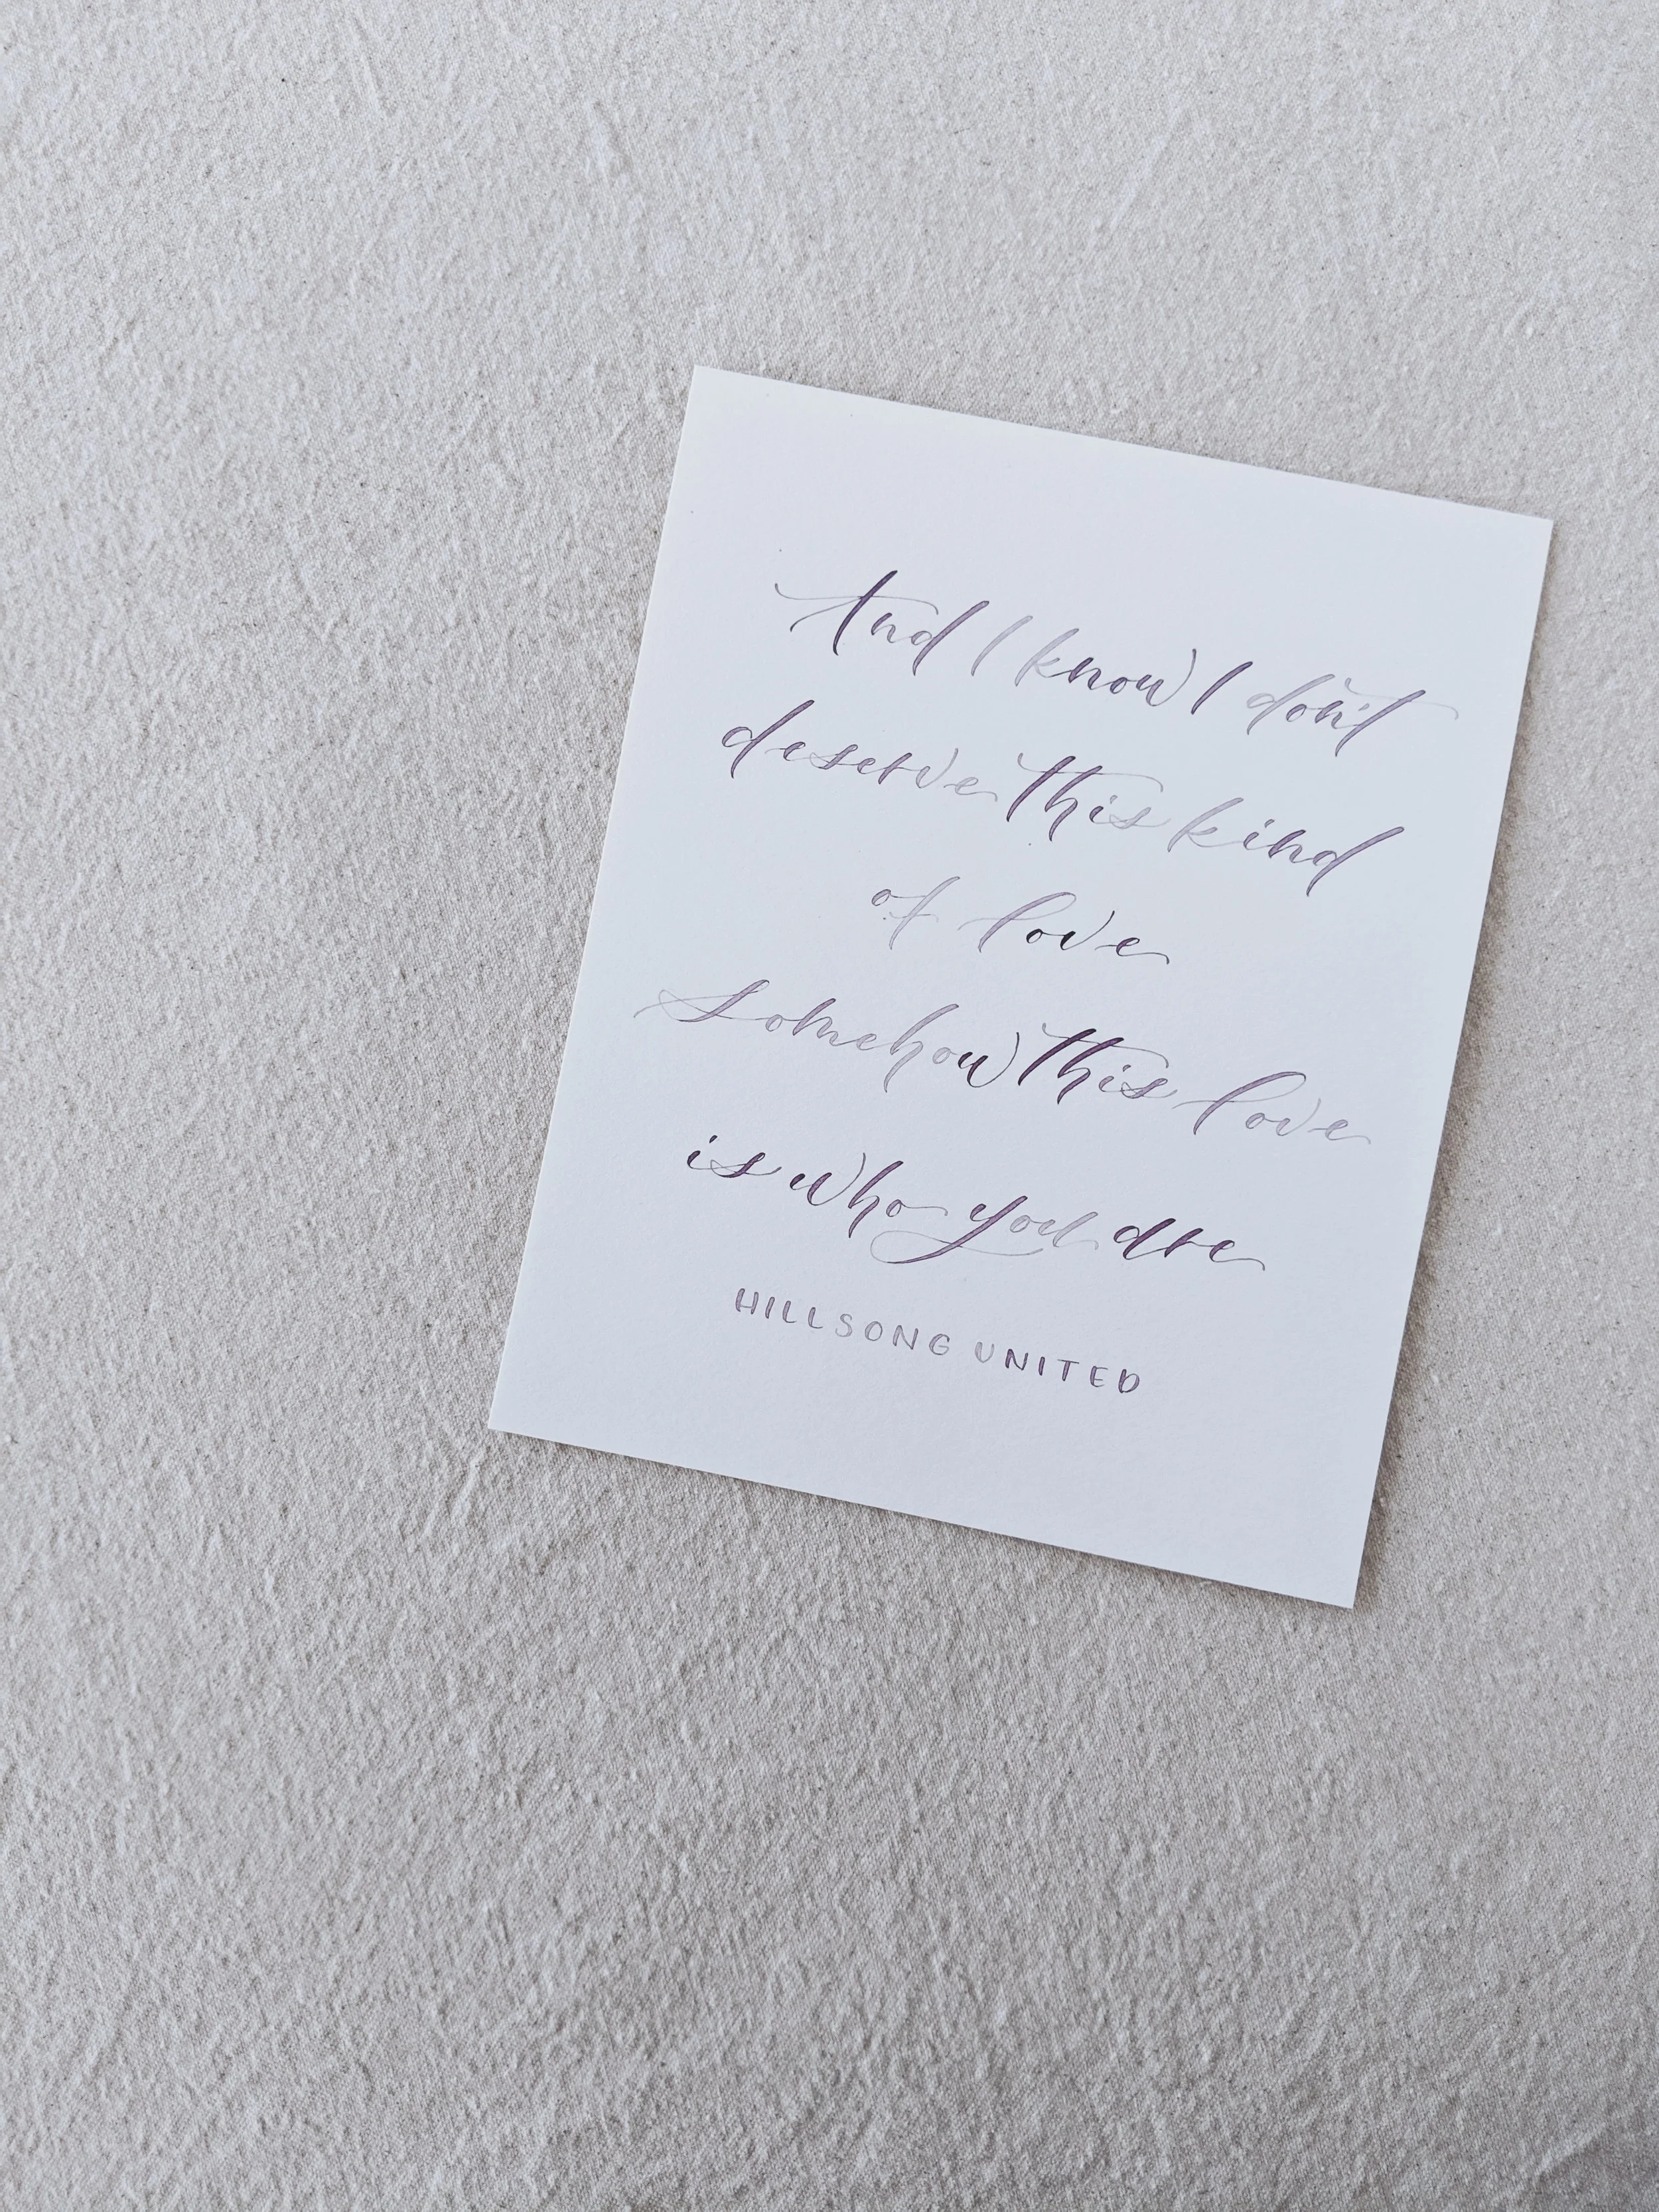 And I know I don't
deserve this kind
of love
somehow this love
is who you are
HILLSONG UNITED